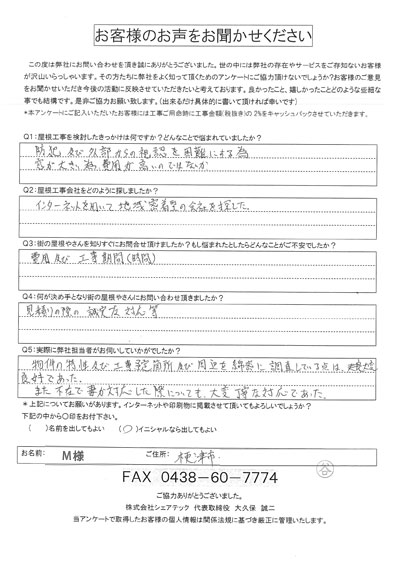 お客様のお声をお聞かせください
この度は弊社にお問い合わせを頂き誠にありがとうございました。世の中には弊社の存在やサービスをご存知ないお客様
が沢山いらっしゃいます。その方たちに弊社をよく知って頂くためのアンケートにご協力頂けないでしょうか?お客様のご意見
をお聞かせいただき今後の活動に活かしていきたいと考えております。良かったこと、嬉しかったことなどのような些細な
事でも結構です。是非ご協力お願い致します。(出来るだけ具体的に書いて頂ければ幸いです)
*本アンケートにご記入いただいたお客様には工事ご用命時に工事金額(税抜き)の2%をキャッシュバックさせていただきます。
Q1:屋根工事を検討したきっかけは何ですか?どんなことで悩まれていましたか?
防犯及び外部からの視認を困難にする為
窓が大きい為、費用が高いのではないか
Q2:屋根工事会社をどのように探しましたか?
インターネットを用いて地域密着型の会社を探した。
Q3:街の屋根やさんを知りすぐにお問合せ頂けましたか?もし悩まれたとしたらどんなことがご不安でしたか?
費用及び工事期間(時間)
Q4:何が決め手となり街の屋根やさんにお問い合わせ頂きましたか?
見積りの際の誠実な対応等
Q5:実際に弊社担当者がお伺いしていかがでしたか?
物件の特性及び工事箇所及び周辺を綿密に調査している点は
良好であった。
また不在で妻が対応した際についても、大変丁寧な対応であった。
*上記についてお願いがあります。インターネットや印刷物に掲載させて頂いてもよろしいでしょうか?
下記の中から〇印をお付け下さい。
( )名前を出してもよい (〇)イニシャルなら出してもよい
お名前: M様 ご住所: 木更津市
谷
FAX 0438-60-7774
ご協力ありがとうございました。
株式会社シェアテック 代表取締役 大久保 誠二
当アンケートで取得したお客様の個人情報は関係法規に基づき厳正に管理いたします。